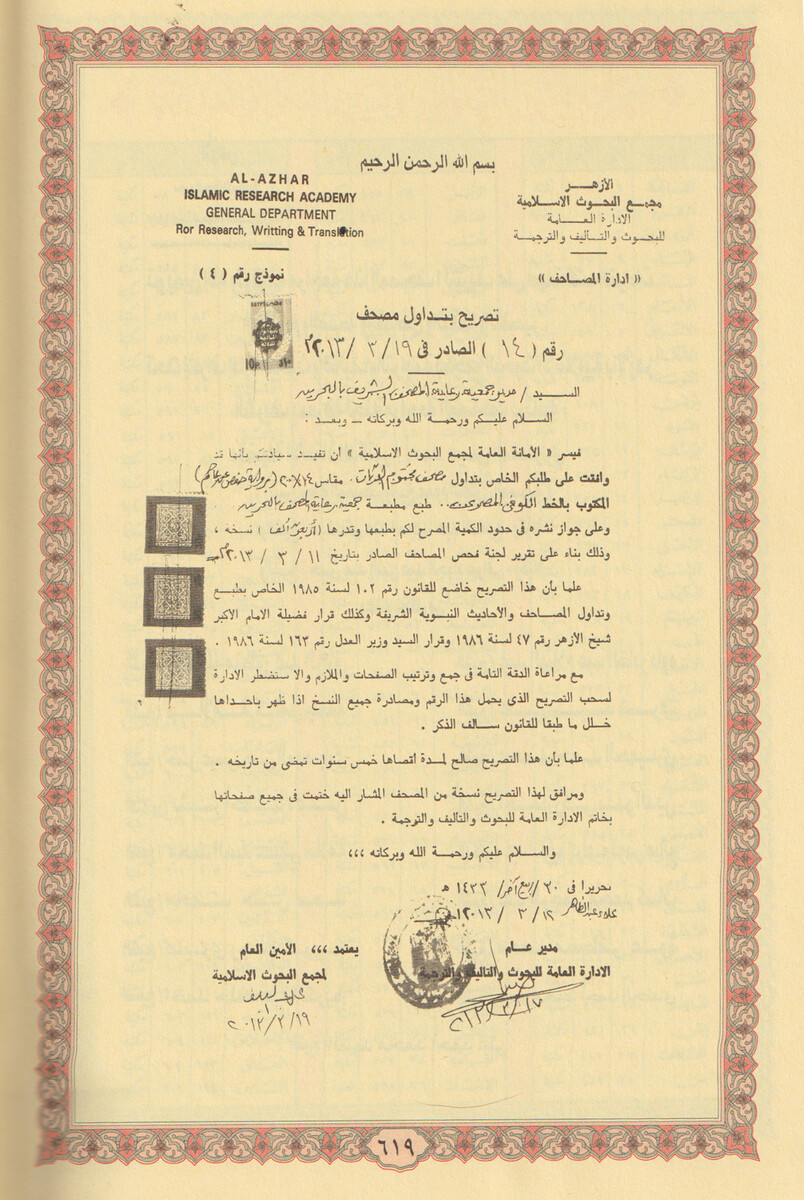 بسم الله الرحمن الرحيم
AL-AZHAR
ISLAMIC RESEARCH ACADEMY
GENERAL DEPARTMENT
Ror Research, Writting & Translation
الأزهـــر
مجمع البحوث الاسلامية
الادارة العـــامة
للبحوث والتأليف والترجمة
نموذج رقم ( ٤ )
« ادارة المصاحف »
تصريح بتداول مصحف
رقم ( ١٤ ) الصادر فى ١٩ / ٣ / ٢٠١٣ م
السـيد / مدير جمعية رعاية المصحف الشريف بالبحرين
السـلام عليـكم ورحمـة الله وبركاته ــ وبعـد :
فيسر « الأمانة العامة لمجمع البحوث الاسلامية » ان تفيـد سيادتكم بأنها قد
وافقت على طلبكم الخاص بتداول مصحف مقاس ١٤×٢٠ (برواية حفص عن عاصم)
المكتوب بالخط الكوفى .. طبع مطبعـة جمعية رعاية المصحف بالبحرين
وعلى جواز نشره فى حدود الكمية المصرح لكم بطبعها وقدرها ( ألف ) نسخة ،
وذلك بناء على تقرير لجنة فحص المصاحف الصادر بتاريخ ١١ / ٣ / ٢٠١٣ م
علما بأن هذا التصريح خاضع للقانون رقم ١٠٢ لسنة ١٩٨٥ الخاص بطبـع
وتداول المصـاحف والأحاديث النبـوية الشريفة وكذلك قرار فضيلة الامام الأكبر
شيخ الأزهر رقم ٤٧ لسنة ١٩٨٦ وقرار السيد وزير العدل رقم ١٦٣ لسنة ١٩٨٦ .
مع مراعاة الدقة التامة فى جمع وترتيب الصفحات والملازم والا ستضطر الادارة
لسحب التصريح الذى يحمل هذا الرقم ومصادرة جميع النسخ اذا ظهر باحداها
خلل ما طبقا للقانون سـالف الذكر .
علما بأن هذا التصريح صالح لمـدة أقصاها خمس سنوات تمضى من تاريخه .
ومرافق لهذا التصريح نسخة من المصحف المشار اليه ختمت فى جميع صفحاتها
بخاتم الادارة العامة للبحوث والتأليف والترجمة .
والسـلام عليكم ورحمـة الله وبركاته ،،،
تحريرا فى ٣٠ / ربيع آخر / ١٤٣٢ هـ
١٩ / ٣ / ٢٠١٣ م
مدير عـام
الادارة العامة للبحوث والتأليف والترجمة
يعتمد ،،، الأمين العام
لمجمع البحوث الاسلامية
٢٠١٣/٣/١٧
٢٠١٣/٣/١٩
٦١٩